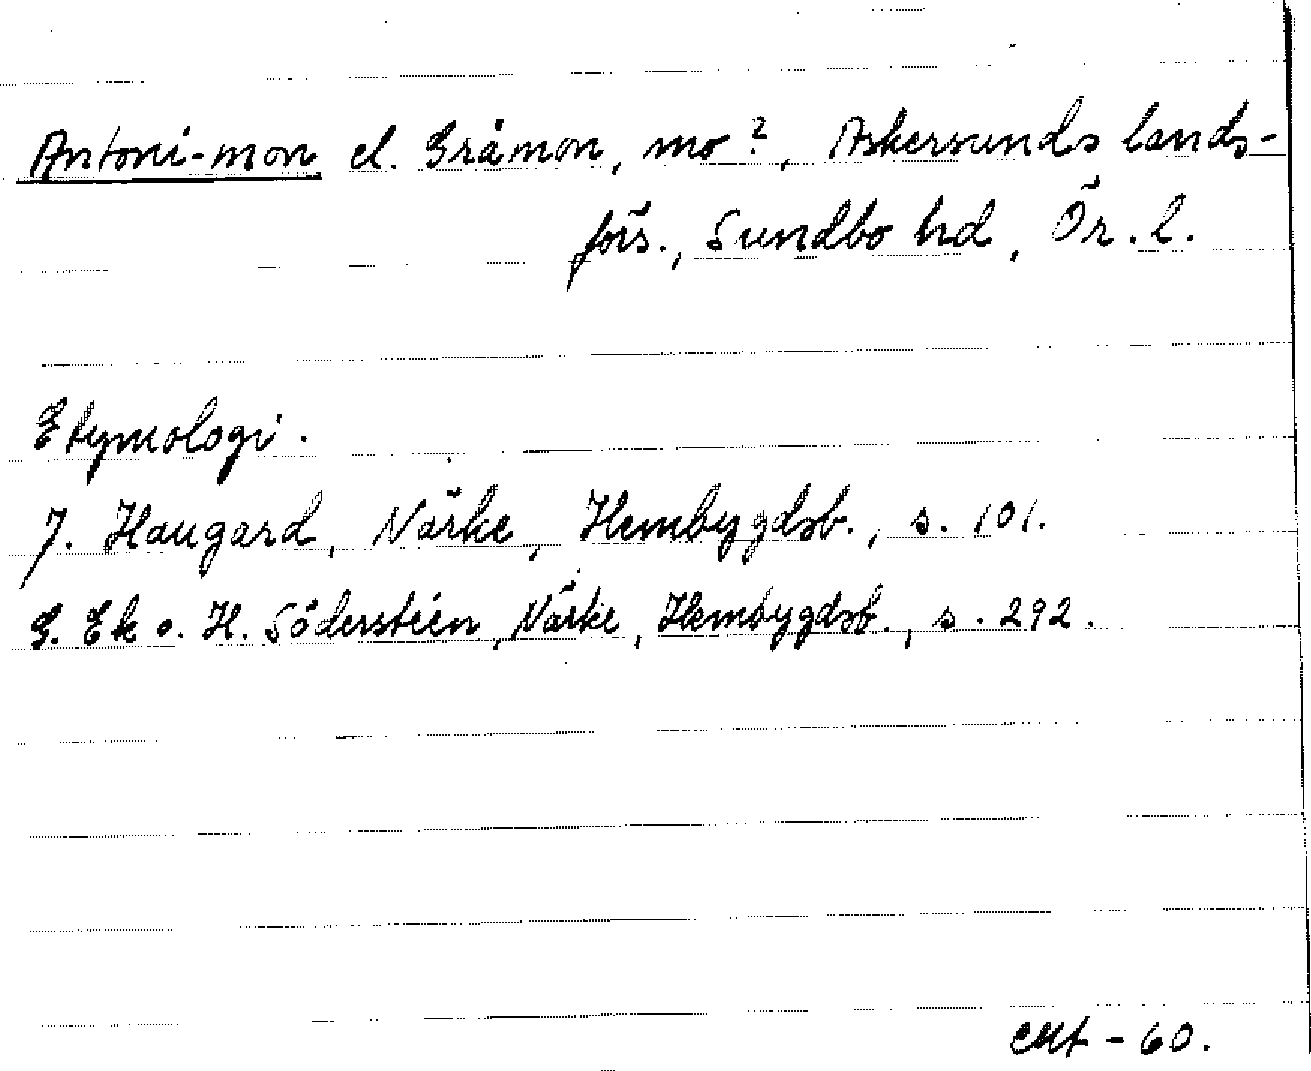 Antoni-mon el. Gråmon, mo?, Askersunds lands-
förs., Sundbo hd, Ör. l.
Etymologi.
J. Haugard, Närke, Hembygdsb., s. 101.
G. Ek o. H. Söderstéen, Närke, Hembygdsb., s. 292.
- 60.